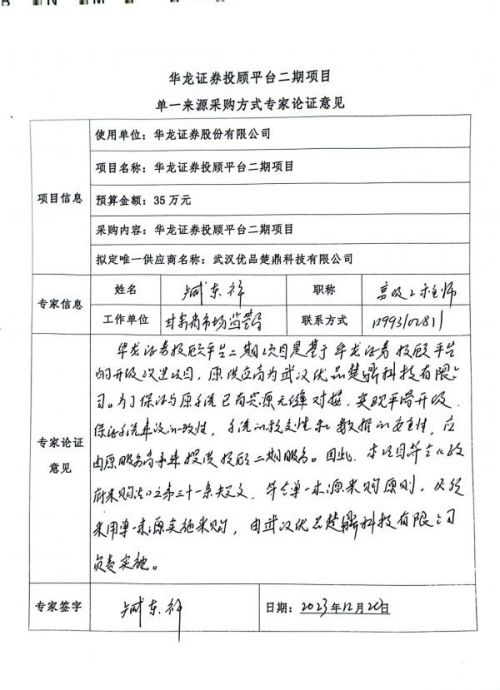 华龙证券投顾平台二期项目
单一来源采购方式专家论证意见
项目信息
使用单位：华龙证券股份有限公司
项目名称：华龙证券投顾平台二期项目
预算金额：35万元
采购内容：华龙证券投顾平台二期项目
拟定唯一供应商名称：武汉优品楚鼎科技有限公司
专家信息
姓名 臧东祥 职称 高级工程师
工作单位 甘肃省市场监管局 联系方式
专家论证
意见
华龙证券投顾平台二期项目是基于华龙证券投顾平台
的升级改造项目，原供应商为武汉优品楚鼎科技有限公
司。为了保证与原系统已有资源无缝对接，实现平滑升级，
保证系统建设的一致性，系统的稳定性和数据的安全性，应
由原服务商来提供投顾二期服务。因此，本项目符合《政
府采购法》之第三十一条规定，符合单一来源采购原则，必须
采用单一来源实施采购，由武汉优品楚鼎科技有限公司
负责实施。
专家签字 臧东祥 日期：2023年12月20日